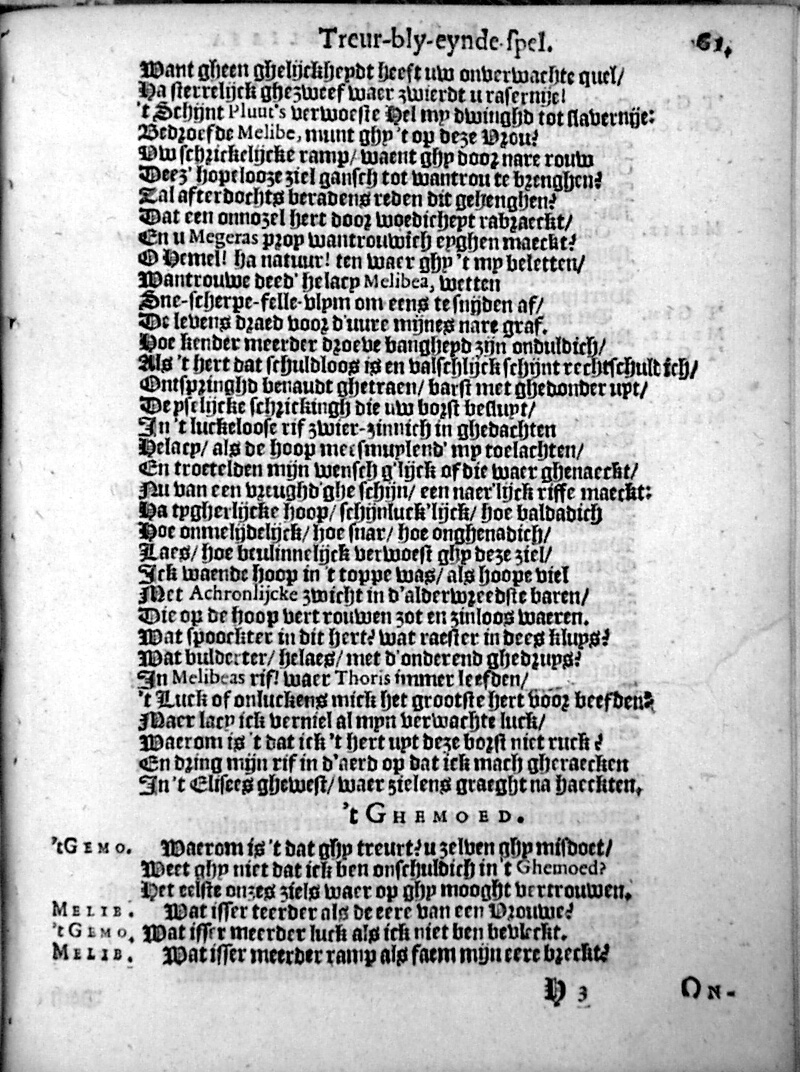 Treur-bly-eynde-spel. 61.
Want gheen ghelijckheydt heeft uw onverwachte quel/
Ha sterrelijck ghezweef waer zwierdt u rasernije!
't Schijnt Pluut's verwoeste Hel my dwinghd tot slavernije:
Bedroefde Melibe, munt ghy 't op deze Vrou?
Uw schrickelijcke ramp/ waent ghy door nare rouw
Deez' hopelooze ziel gansch tot wantrou te brenghen?
Zal afterdochts beradens reden dit gehenghen?
Dat een onnozel hert door woedicheyt rabraeckt/
En u Megeras prop wantrouwich eyghen maeckt?
O Hemel! ha natuur! ten waer ghy 't my beletten/
Wantrouwe deed' helacy Melibea, wetten
Sne-scherpe-felle-vlym om eens te snijden af/
De levens draed voor d'uure mijnes nare graf.
Hoe kender meerder droeve bangheyd zijn onduldich/
Als 't hert dat schuldloos is en valschlijck schijnt rechtschuldich/
Ontspringhd benaudt ghetraen/ barst met ghedonder uyt/
De yselijcke schrickingh die uw borst besluyt/
In 't luckeloose rif zwier-zinnich in ghedachten
Helacy/ als de hoop meesmuylend' my toelachten/
En troetelden mijn wensch g'lijck of die waer ghenaeckt/
Nu van een vreughd'ghe schijn/ een naer'lijck riffe maeckt:
Ha tygherlijcke hoop/ schijnluck'lijck/ hoe baldadich
Hoe onmeljdelijck/ hoe snar/ hoe onghenadich/
Laes/ hoe beulinnelijck verwoest ghy deze ziel/
Ick waende hoop in 't toppe was/ als hoope viel
Met Achronlijcke zwicht in d'alderwreedste baren/
Die op de hoop vertrouwen zot en zinloos waeren.
Wat spoockter in dit hert? wat raester in dees kluys?
Wat bulderter/ helaes/ met d'onderend ghedruys?
In Melibeas rif! waer Thoris immer leefden/
't Luck of onluckens mick het grootste hert voor beefden?
Maer lacy ick verniel al myn verwachte luck/
Waerom is 't dat ick 't hert uyt deze borst niet ruck?
En dring mijn rif in d'aerd op dat ick mach gheraecken
In 't Elisees ghewest/ waer zielens graeght na haeckten.
't GHEMOED.
'tGEMO. Waerom is 't dat ghy treurt? u zelven ghy misdoet/
Weet ghy niet dat ick ben onschuldich in 't Ghemoed?
Het eelste onzes ziels waer op ghy mooght vertrouwen.
MELIB. Wat isser teerder als de eere van een Vrouwe?
'tGEMO. Wat isser meerder luck als ick niet ben bevleckt.
MELIB. Wat isser meerder ramp als faem mijn eere breckt?
H 3 ON-